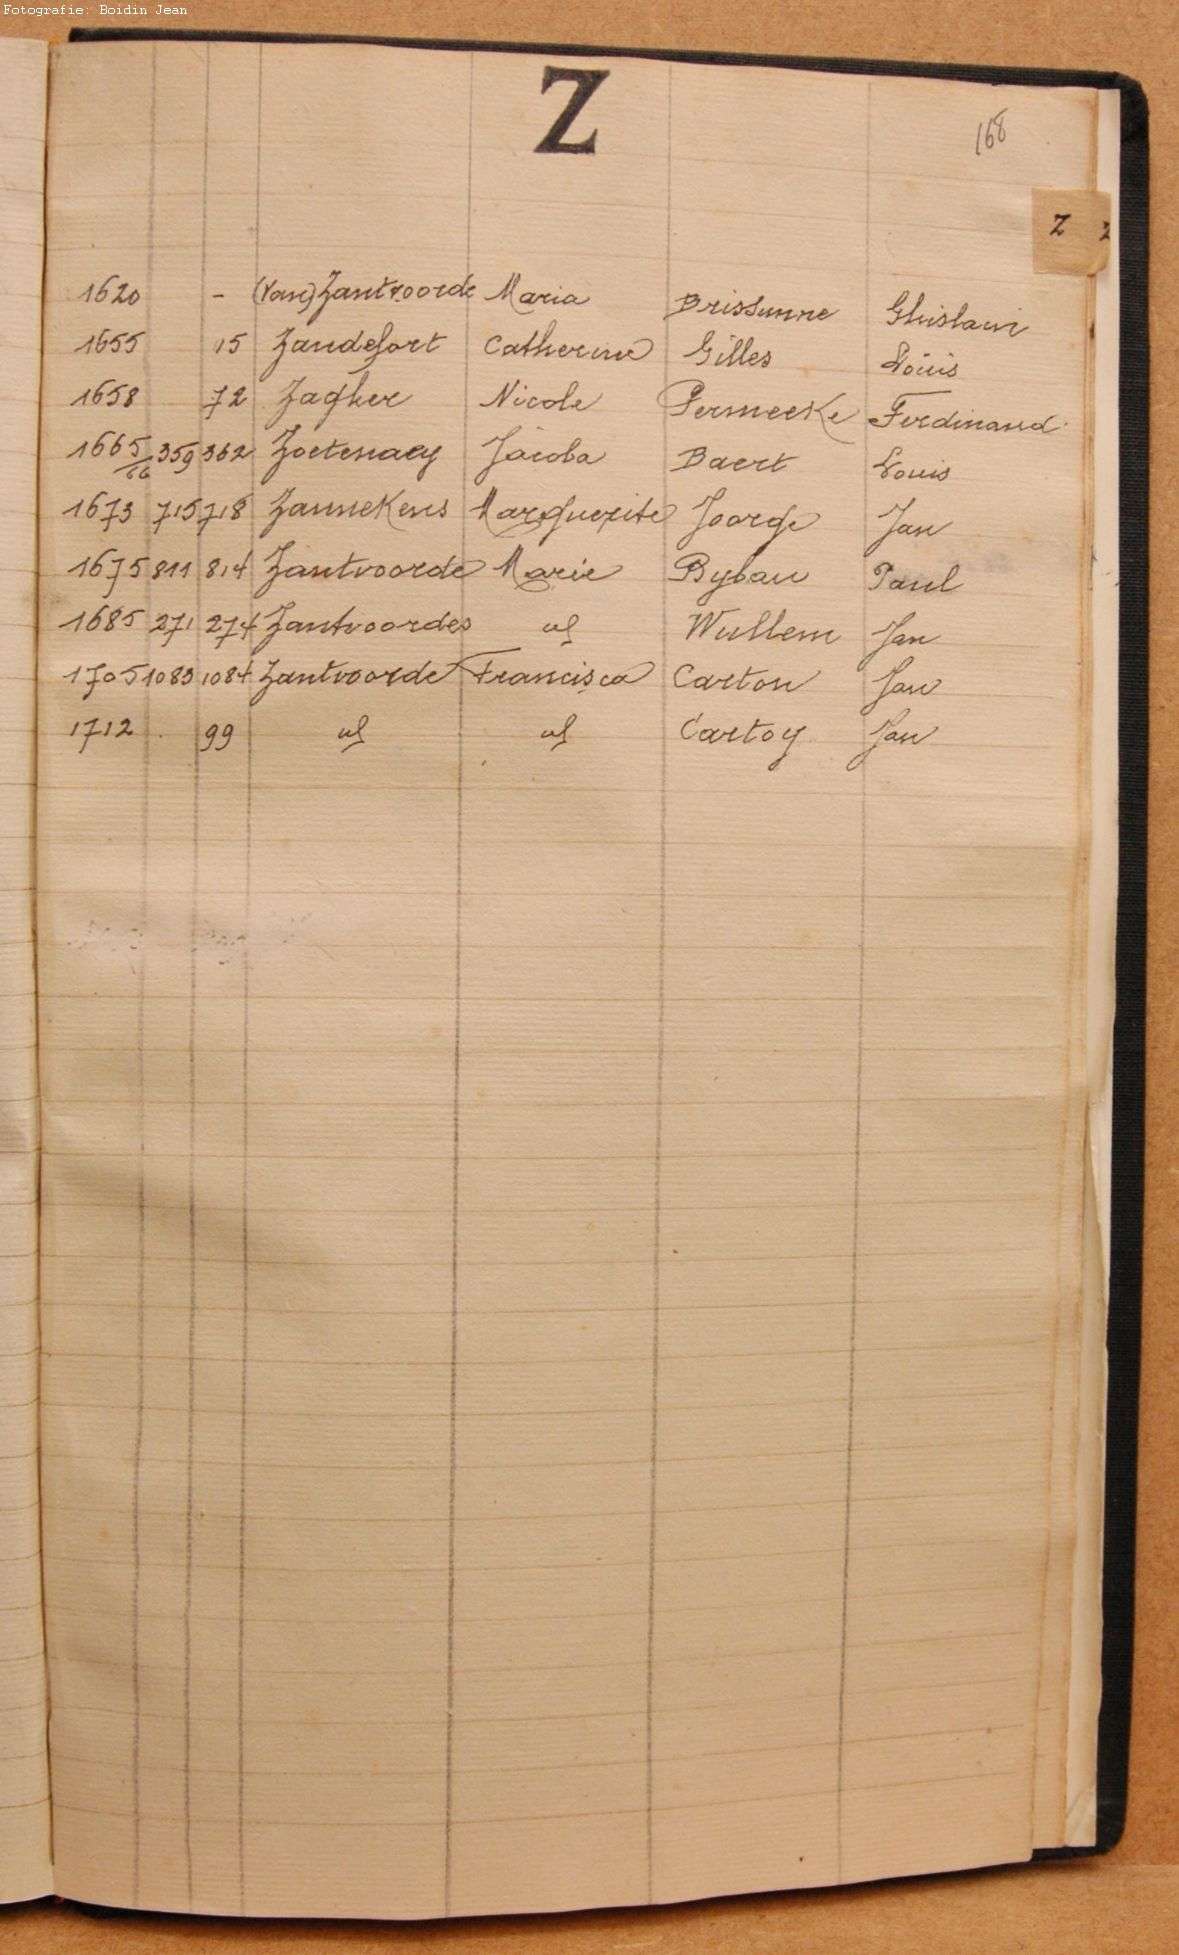 Fotografie: Boidin Jean
Z
168
Z
1620 - (Van) Zantvoorde Maria Brissunne Ghislain
1655 15 Zandefort Catherine Gilles Louis
1658 72 Zagher Nicole Permeeke Ferdinand
1665/66 359 362 Zoetenaey Jacoba Baert Louis
1673 715 718 Zannekens Marguerite Joorge Jan
1675 811 814 Zantvoorde Marie Byban Paul
1685 271 274 Zantvoordes Wullem Jan
1705 1083 1084 Zantvoorde Francisca Carton Jan
1712 99 Cartoy Jan